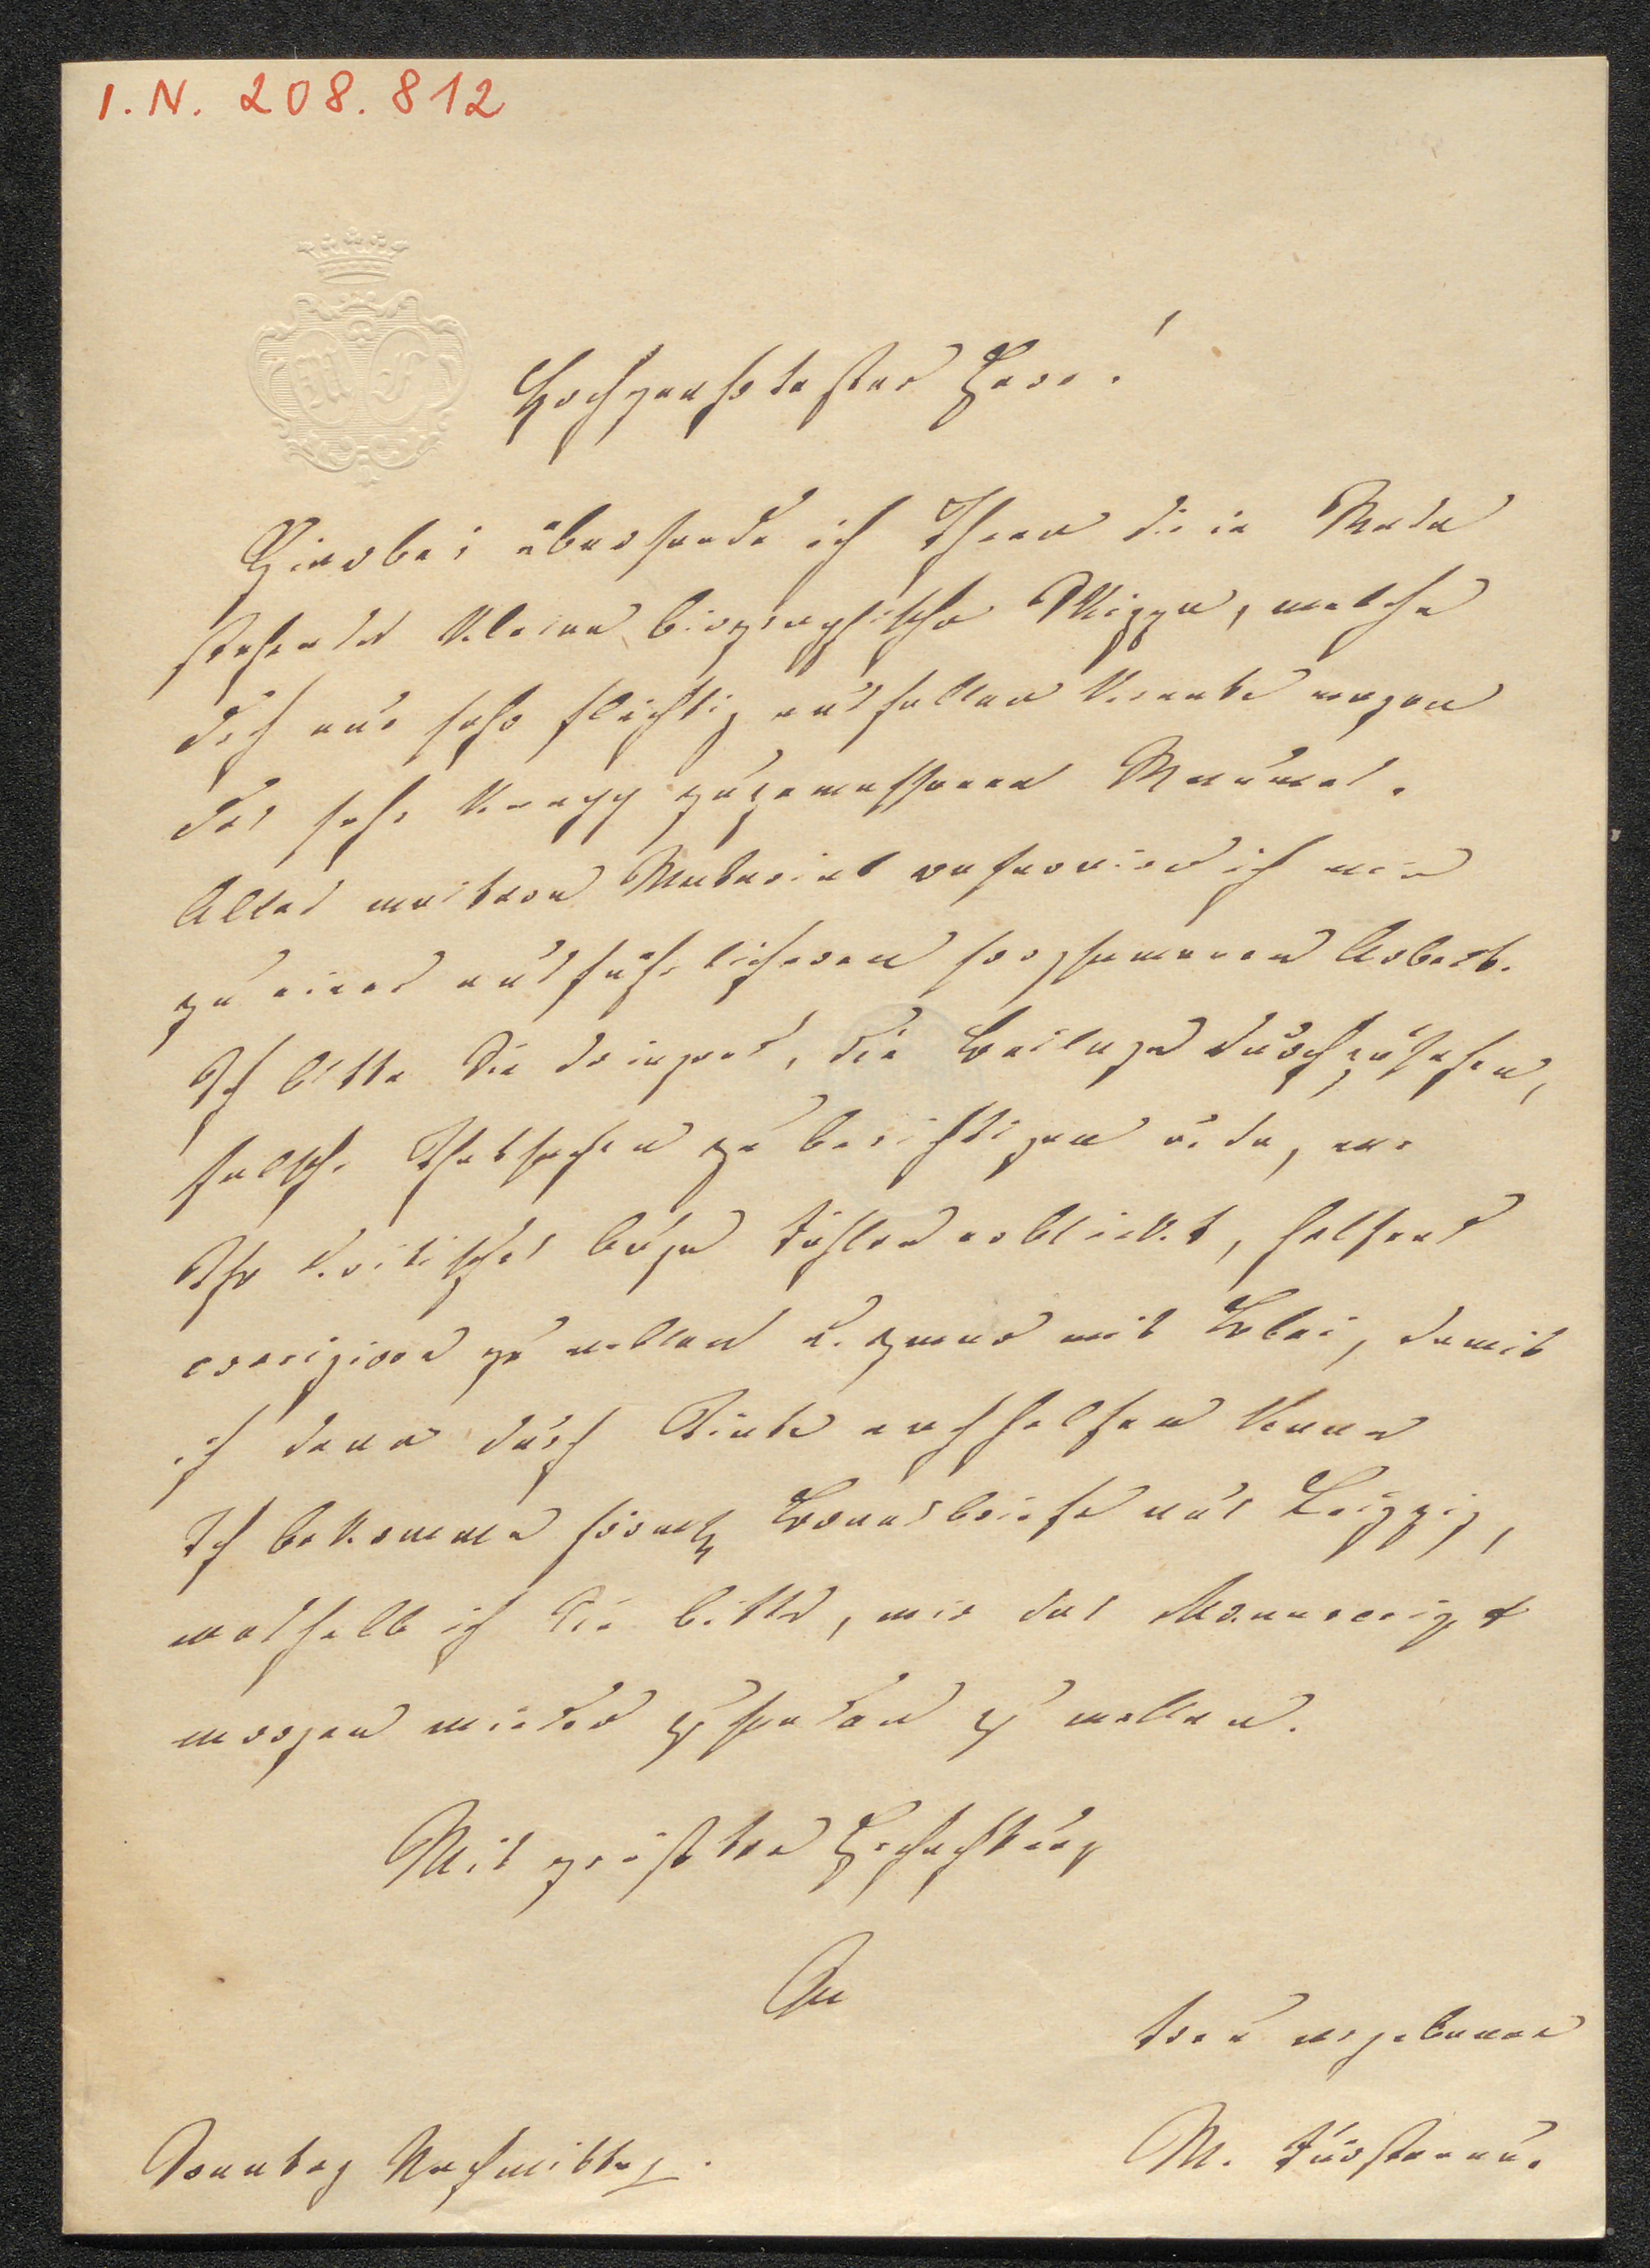 I.N. 208.812
M F
Hochgeehrtester Herr!
Hierbei übersende ich Ihnen die in Rede
stehende kleine biographische Skizze, welche
doch nur sehr flüchtig ausfallen konnte wegen
des sehr knapp zugemessenen Raumes.
Alles weitere Material reservire ich mir
zu einer ausführlicheren sorgsameren Arbeit.
Ich bitte Sie dringend, die Beilage durchzusehen,
falsche Thatsachen zu berichtigen oder, wo
Ihr kritisches Auge Fehler erblickt, helfend
corrigiren zu wollen u. zwar mit Blei, damit
ich dann durch Tinte nachhelfen kann
Ich bekomme förml. Brandbriefe aus Leipzig,
weshalb ich Sie bitte, mir das Manuscript
morgen wieder zusenden zu wollen.
Mit größter Hochachtung
Ihr
treu ergebener
Sonntag Nachmittag.
M. Fürstenau.